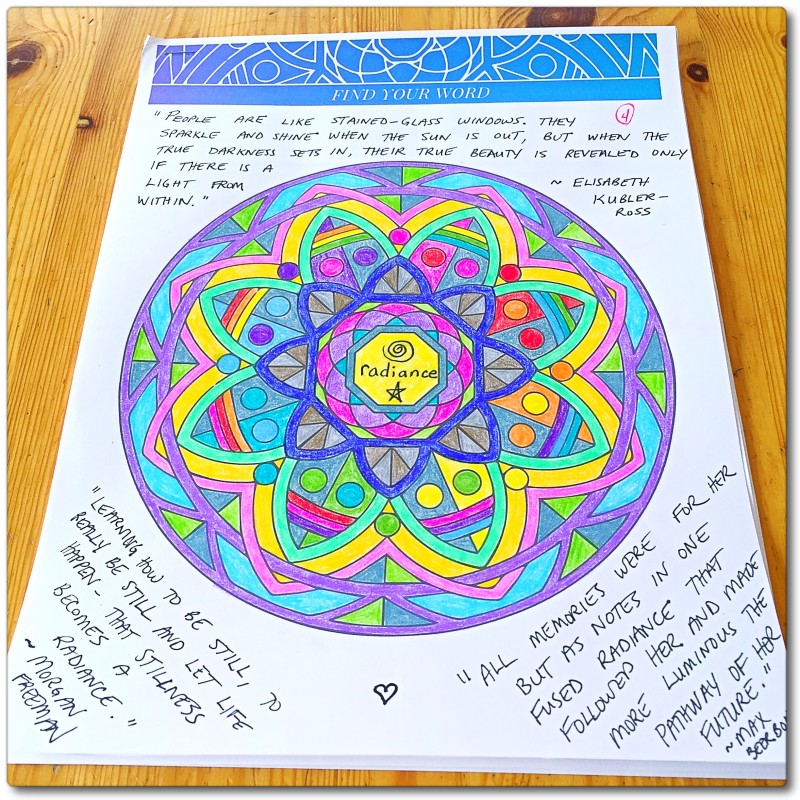 FIND YOUR WORD
"PEOPLE ARE LIKE STAINED-GLASS WINDOWS. THEY
4
SPARKLE AND SHINE WHEN THE SUN IS OUT, BUT WHEN THE
TRUE DARKNESS SETS IN, THEIR TRUE BEAUTY IS REVEALED ONLY
IF THERE IS A
LIGHT FROM
WITHIN."
~ ELISABETH
KUBLER-
ROSS
radiance
"LEARNING HOW TO BE STILL, TO
REALLY BE STILL AND LET LIFE
HAPPEN- THAT STILLNESS
BECOMES A
RADIANCE."
~ MORGAN
FREEMAN
"ALL MEMORIES WERE FOR HER
BUT AS NOTES IN ONE
FUSED RADIANCE THAT
FOLLOWED HER AND MADE
MORE LUMINOUS THE
PATHWAY OF HER
FUTURE."
~MAX